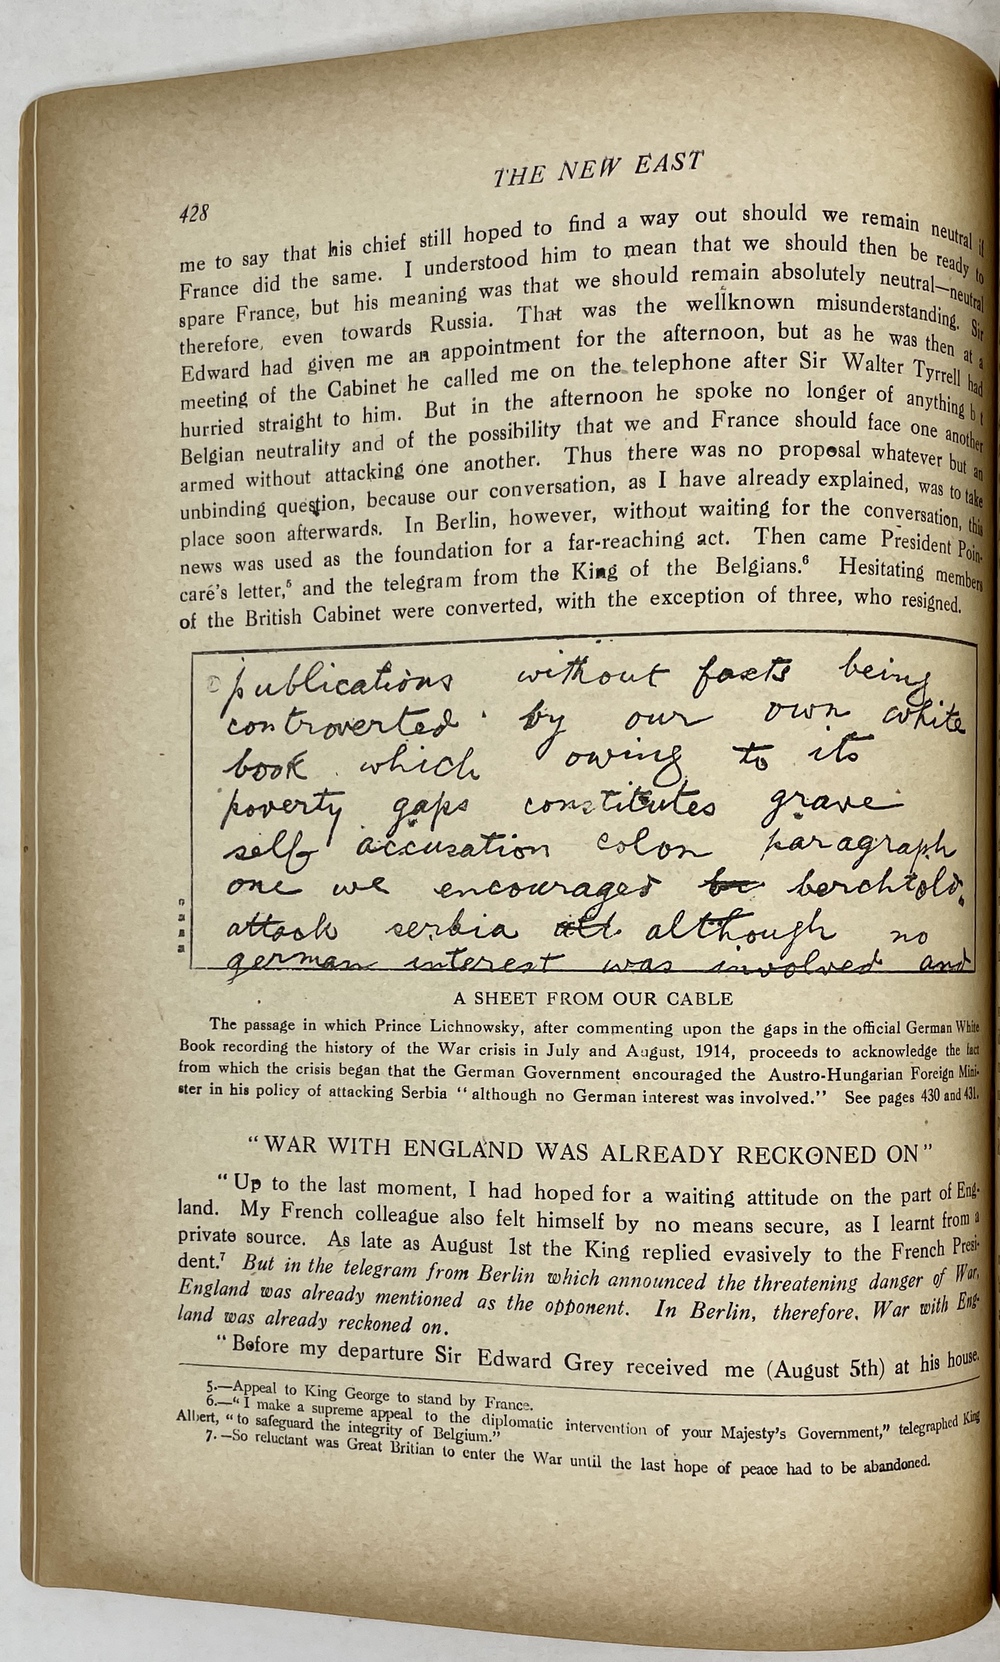 THE NEW EAST
428
me to say that his chief still hoped to find a way out should we remain neutral if
France did the same. I understood him to mean that we should then be ready to
spare France, but his meaning was that we should remain absolutely neutral—neutral
therefore, even towards Russia. That was the wellknown misunderstanding. Sir
Edward had given me an appointment for the afternoon, but as he was then at a
meeting of the Cabinet he called me on the telephone after Sir Walter Tyrrell had
hurried straight to him. But in the afternoon he spoke no longer of anything b t
Belgian neutrality and of the possibility that we and France should face one another
armed without attacking one another. Thus there was no proposal whatever but an
unbinding question, because our conversation, as I have already explained, was to take
place soon afterwards. In Berlin, however, without waiting for the conversation, this
news was used as the foundation for a far-reaching act. Then came President Poin-
caré's letter,⁵ and the telegram from the King of the Belgians.⁶ Hesitating members
of the British Cabinet were converted, with the exception of three, who resigned.
publications without facts being
controverted by our own white
book which owing to its
poverty gaps constitutes grave
self accusation colon paragraph
one we encouraged be berchtold
attack serbia alt although no
german interest was involved and
A SHEET FROM OUR CABLE
The passage in which Prince Lichnowsky, after commenting upon the gaps in the official German White
Book recording the history of the War crisis in July and August, 1914, proceeds to acknowledge the fact
from which the crisis began that the German Government encouraged the Austro-Hungarian Foreign Mini-
ster in his policy of attacking Serbia "although no German interest was involved." See pages 430 and 431.
"WAR WITH ENGLAND WAS ALREADY RECKONED ON"
"Up to the last moment, I had hoped for a waiting attitude on the part of Eng-
land. My French colleague also felt himself by no means secure, as I learnt from a
private source. As late as August 1st the King replied evasively to the French Presi-
dent.⁷ But in the telegram from Berlin which announced the threatening danger of War,
England was already mentioned as the opponent. In Berlin, therefore, War with Eng-
land was already reckoned on.
"Before my departure Sir Edward Grey received me (August 5th) at his house.
5.—Appeal to King George to stand by France.
6.—"I make a supreme appeal to the diplomatic intervention of your Majesty's Government," telegraphed King
Albert, "to safeguard the integrity of Belgium."
7.—So reluctant was Great Britian to enter the War until the last hope of peace had to be abandoned.